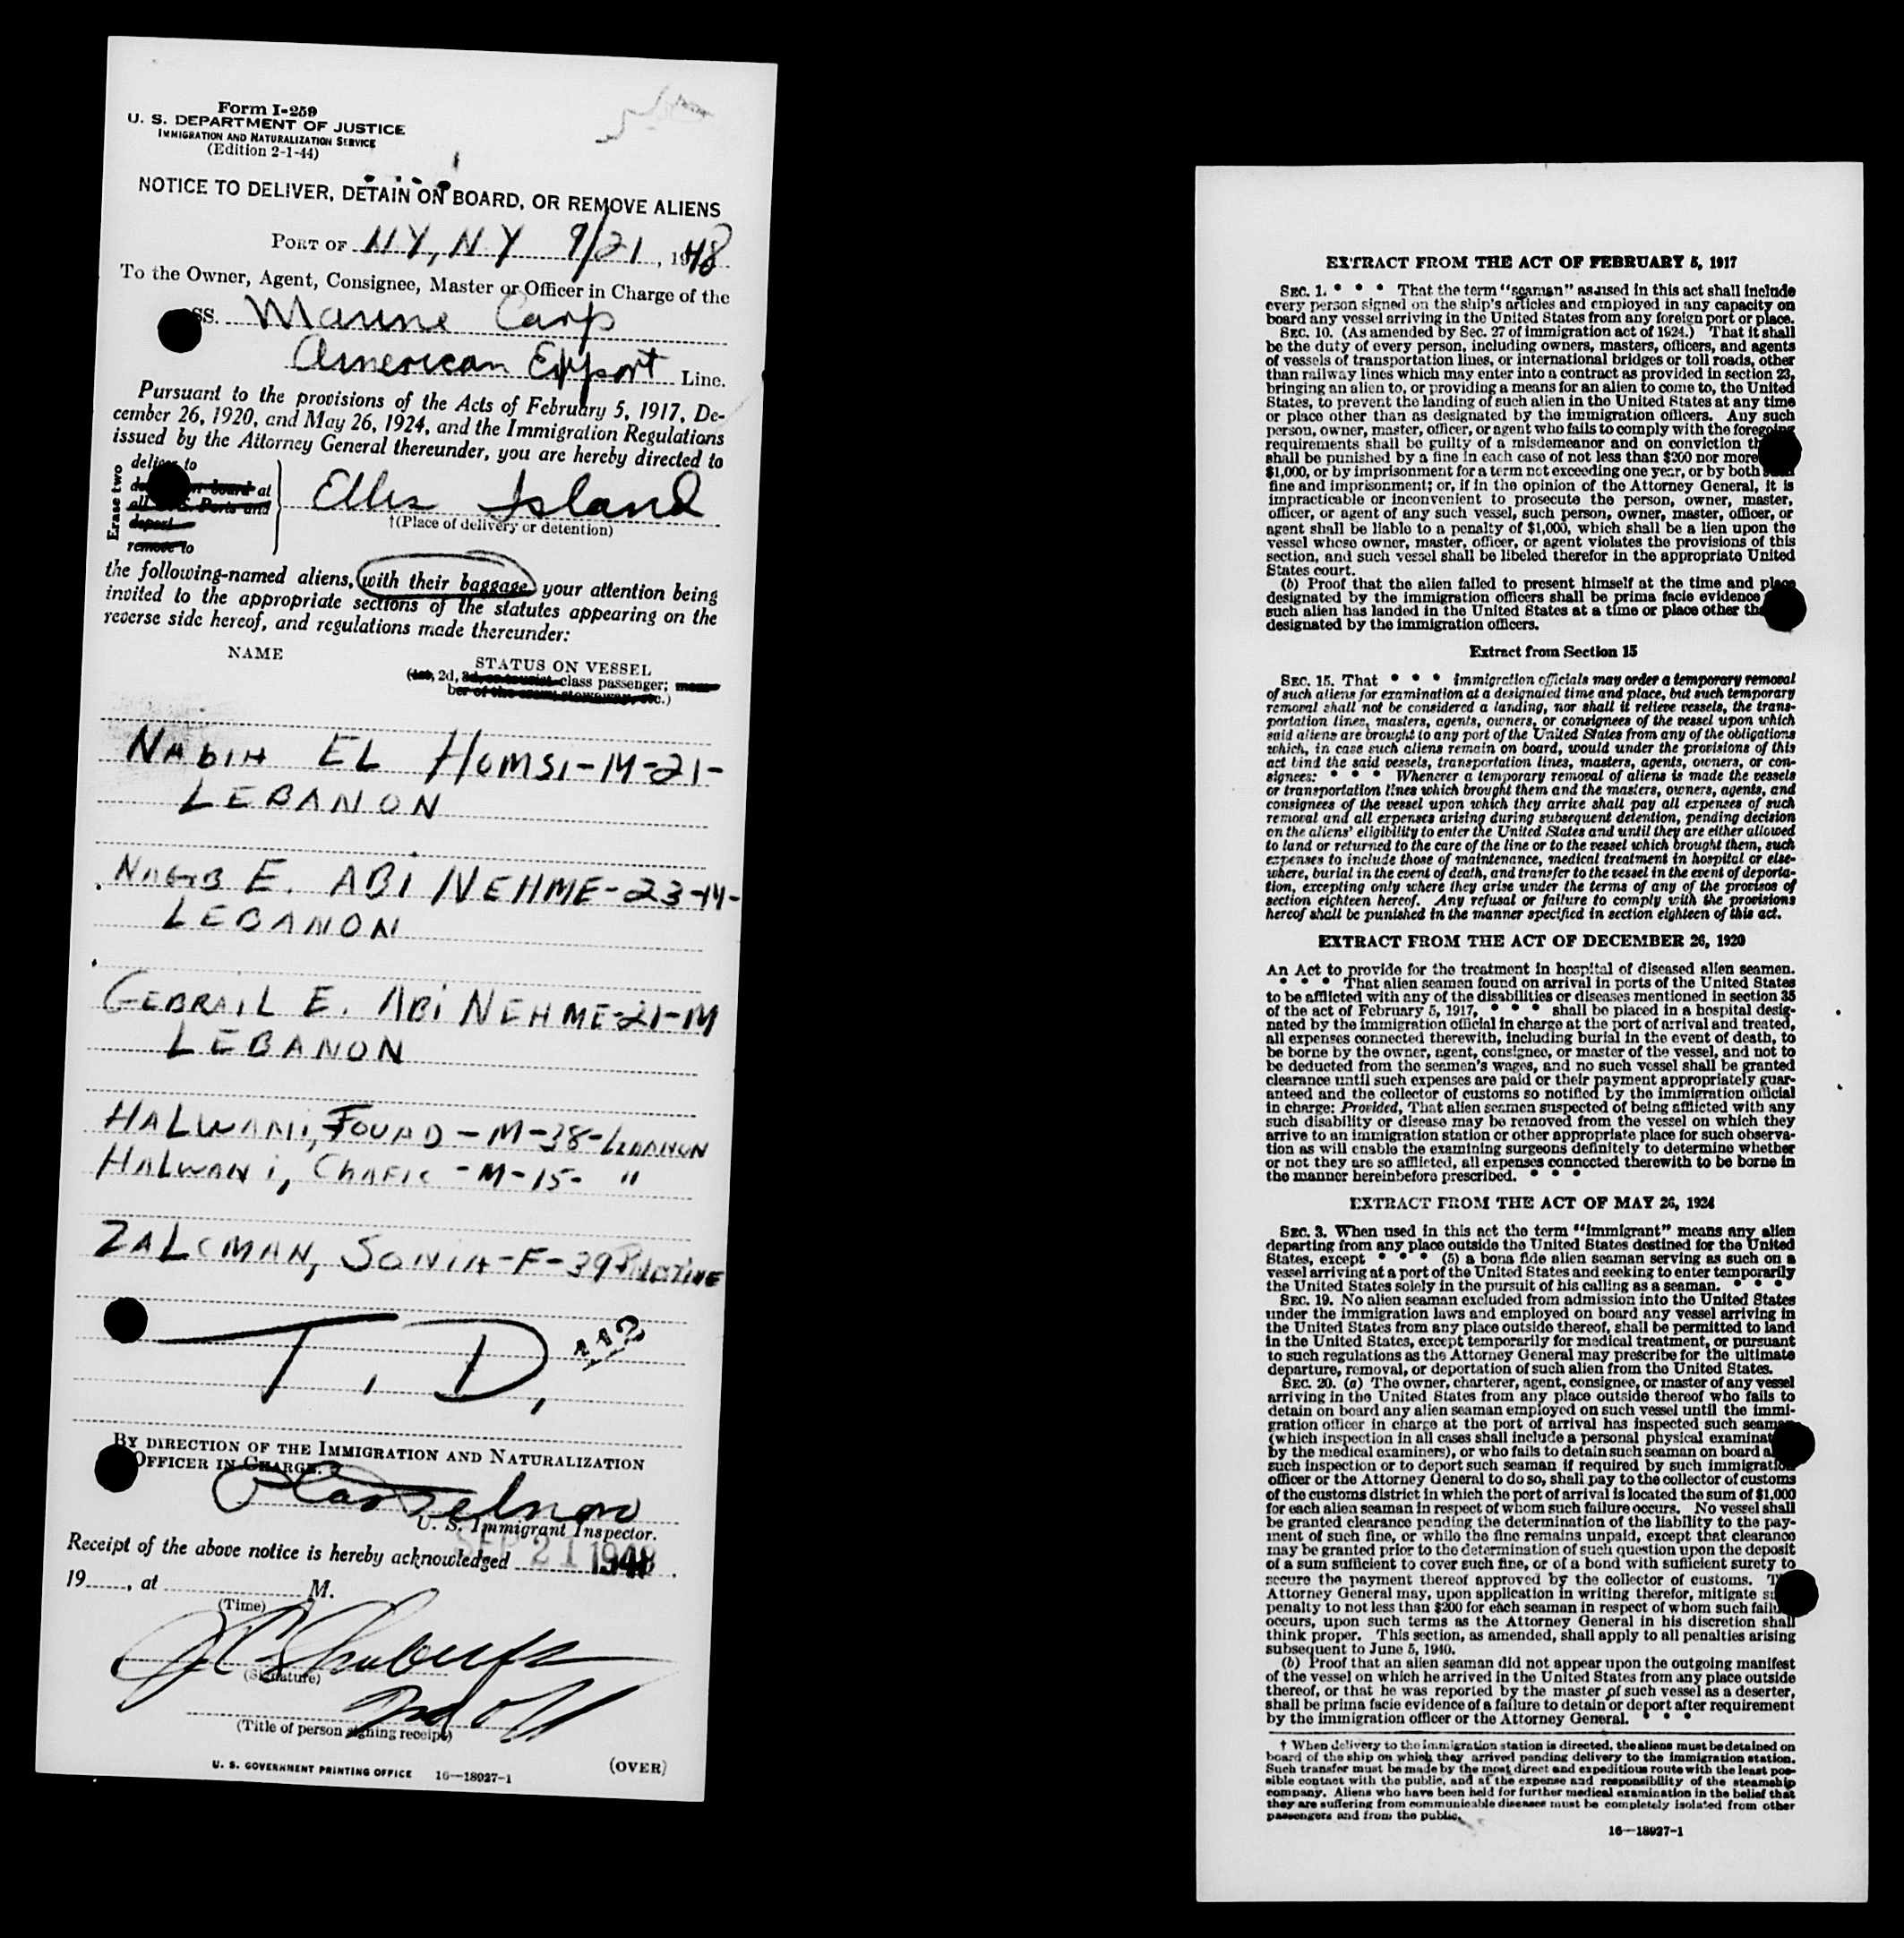 Form I-259
U. S. DEPARTMENT OF JUSTICE
IMMIGRATION AND NATURALIZATION SERVICE
(Edition 2-1-44)
NOTICE TO DELIVER, DETAIN ON BOARD, OR REMOVE ALIENS
PORT OF NY, NY 9/21, 1948
To the Owner, Agent, Consignee, Master or Officer in Charge of the
SS. Marine Carp
American Export Line.
Pursuant to the provisions of the Acts of February 5, 1917, De-
cember 26, 1920, and May 26, 1924, and the Immigration Regulations
issued by the Attorney General thereunder, you are hereby directed to
Erase two
deliver to
board at
all U.S. Ports and
deport
remove to
Ellis Island
†(Place of delivery or detention)
the following-named aliens, with their baggage, your attention being
invited to the appropriate sections of the statutes appearing on the
reverse side hereof, and regulations made thereunder:
NAME
STATUS ON VESSEL
(1st, 2d, 3d, or tourist-class passenger; mem-
ber of the crew, stowaway, etc.)
NABIH EL HOMSI-M-21-
LEBANON
NAGIB E. ABI NEHME-23-M-
LEBANON
GEBRAIL E. ABI NEHME-21-M
LEBANON
HALWANI, FOUAD-M-38-LEBANON
HALWANI, CHAFIC-M-15- "
ZALCMAN, SONIA-F-39
T. D.
BY DIRECTION OF THE IMMIGRATION AND NATURALIZATION
OFFICER IN CHARGE.
U. S. Immigrant Inspector.
Receipt of the above notice is hereby acknowledged SEP 21 1948.
19......, at ............ M.
(Time)
(Signature)
(Title of person signing receipt)
U. S. GOVERNMENT PRINTING OFFICE 16—18927-1
(OVER)
EXTRACT FROM THE ACT OF FEBRUARY 5, 1917
SEC. 1. * * * That the term "seaman" as used in this act shall include
every person signed on the ship's articles and employed in any capacity on
board any vessel arriving in the United States from any foreign port or place.
SEC. 10. (As amended by Sec. 27 of immigration act of 1924.) That it shall
be the duty of every person, including owners, masters, officers, and agents
of vessels of transportation lines, or international bridges or toll roads, other
than railway lines which may enter into a contract as provided in section 23,
bringing an alien to, or providing a means for an alien to come to, the United
States, to prevent the landing of such alien in the United States at any time
or place other than as designated by the immigration officers. Any such
person, owner, master, officer, or agent who fails to comply with the foregoing
requirements shall be guilty of a misdemeanor and on conviction
shall be punished by a fine in each case of not less than $200 nor more
$1,000, or by imprisonment for a term not exceeding one year, or by both
fine and imprisonment; or, if in the opinion of the Attorney General, it is
impracticable or inconvenient to prosecute the person, owner, master,
officer, or agent of any such vessel, such person, owner, master, officer, or
agent shall be liable to a penalty of $1,000, which shall be a lien upon the
vessel whose owner, master, officer, or agent violates the provisions of this
section, and such vessel shall be libeled therefor in the appropriate United
States court.
(b) Proof that the alien failed to present himself at the time and place
designated by the immigration officers shall be prima facie evidence
such alien has landed in the United States at a time or place other
designated by the immigration officers.
Extract from Section 15
SEC. 15. That * * * immigration officials may order a temporary removal
of such aliens for examination at a designated time and place, but such temporary
removal shall not be considered a landing, nor shall it relieve vessels, the trans-
portation lines, masters, agents, owners, or consignees of the vessel upon which
said aliens are brought to any port of the United States from any of the obligations
which, in case such aliens remain on board, would under the provisions of this
act bind the said vessels, transportation lines, masters, agents, owners, or con-
signees: * * * Whenever a temporary removal of aliens is made the vessels
or transportation lines which brought them and the masters, owners, agents, and
consignees of the vessel upon which they arrive shall pay all expenses of such
removal and all expenses arising during subsequent detention, pending decision
on the aliens' eligibility to enter the United States and until they are either allowed
to land or returned to the care of the line or to the vessel which brought them, such
expenses to include those of maintenance, medical treatment in hospital or else-
where, burial in the event of death, and transfer to the vessel in the event of deporta-
tion, excepting only where they arise under the terms of any of the provisos of
section eighteen hereof. Any refusal or failure to comply with the provisions
hereof shall be punished in the manner specified in section eighteen of this act.
EXTRACT FROM THE ACT OF DECEMBER 26, 1920
An Act to provide for the treatment in hospital of diseased alien seamen.
* * * That alien seamen found on arrival in ports of the United States
to be afflicted with any of the disabilities or diseases mentioned in section 35
of the act of February 5, 1917, * * * shall be placed in a hospital desig-
nated by the immigration official in charge at the port of arrival and treated,
all expenses connected therewith, including burial in the event of death, to
be borne by the owner, agent, consignee, or master of the vessel, and not to
be deducted from the seamen's wages, and no such vessel shall be granted
clearance until such expenses are paid or their payment appropriately guar-
anteed and the collector of customs so notified by the immigration official
in charge: Provided, That alien seamen suspected of being afflicted with any
such disability or disease may be removed from the vessel on which they
arrive to an immigration station or other appropriate place for such observa-
tion as will enable the examining surgeons definitely to determine whether
or not they are so afflicted, all expenses connected therewith to be borne in
the manner hereinbefore prescribed. * * *
EXTRACT FROM THE ACT OF MAY 26, 1924
SEC. 3. When used in this act the term "immigrant" means any alien
departing from any place outside the United States destined for the United
States, except * * * (5) a bona fide alien seaman serving as such on a
vessel arriving at a port of the United States and seeking to enter temporarily
the United States solely in the pursuit of his calling as a seaman. * * *
SEC. 19. No alien seaman excluded from admission into the United States
under the immigration laws and employed on board any vessel arriving in
the United States from any place outside thereof, shall be permitted to land
in the United States, except temporarily for medical treatment, or pursuant
to such regulations as the Attorney General may prescribe for the ultimate
departure, removal, or deportation of such alien from the United States.
SEC. 20. (a) The owner, charterer, agent, consignee, or master of any vessel
arriving in the United States from any place outside thereof who fails to
detain on board any alien seaman employed on such vessel until the immi-
gration officer in charge at the port of arrival has inspected such seaman
(which inspection in all cases shall include a personal physical examination
by the medical examiners), or who fails to detain such seaman on board
such inspection or to deport such seaman if required by such immigration
officer or the Attorney General to do so, shall pay to the collector of customs
of the customs district in which the port of arrival is located the sum of $1,000
for each alien seaman in respect of whom such failure occurs. No vessel shall
be granted clearance pending the determination of the liability to the pay-
ment of such fine, or while the fine remains unpaid, except that clearance
may be granted prior to the determination of such question upon the deposit
of a sum sufficient to cover such fine, or of a bond with sufficient surety to
secure the payment thereof approved by the collector of customs.
Attorney General may, upon application in writing therefor, mitigate
penalty to not less than $200 for each seaman in respect of whom such failure
occurs, upon such terms as the Attorney General in his discretion shall
think proper. This section, as amended, shall apply to all penalties arising
subsequent to June 5, 1940.
(b) Proof that an alien seaman did not appear upon the outgoing manifest
of the vessel on which he arrived in the United States from any place outside
thereof, or that he was reported by the master of such vessel as a deserter,
shall be prima facie evidence of a failure to detain or deport after requirement
by the immigration officer or the Attorney General. * * *
† When delivery to the immigration station is directed, the aliens must be detained on
board of the ship on which they arrived pending delivery to the immigration station.
Such transfer must be made by the most direct and expeditious route with the least pos-
sible contact with the public, and at the expense and responsibility of the steamship
company. Aliens who have been held for further medical examination in the belief that
they are suffering from communicable diseases must be completely isolated from other
passengers and from the public.
16—18927-1